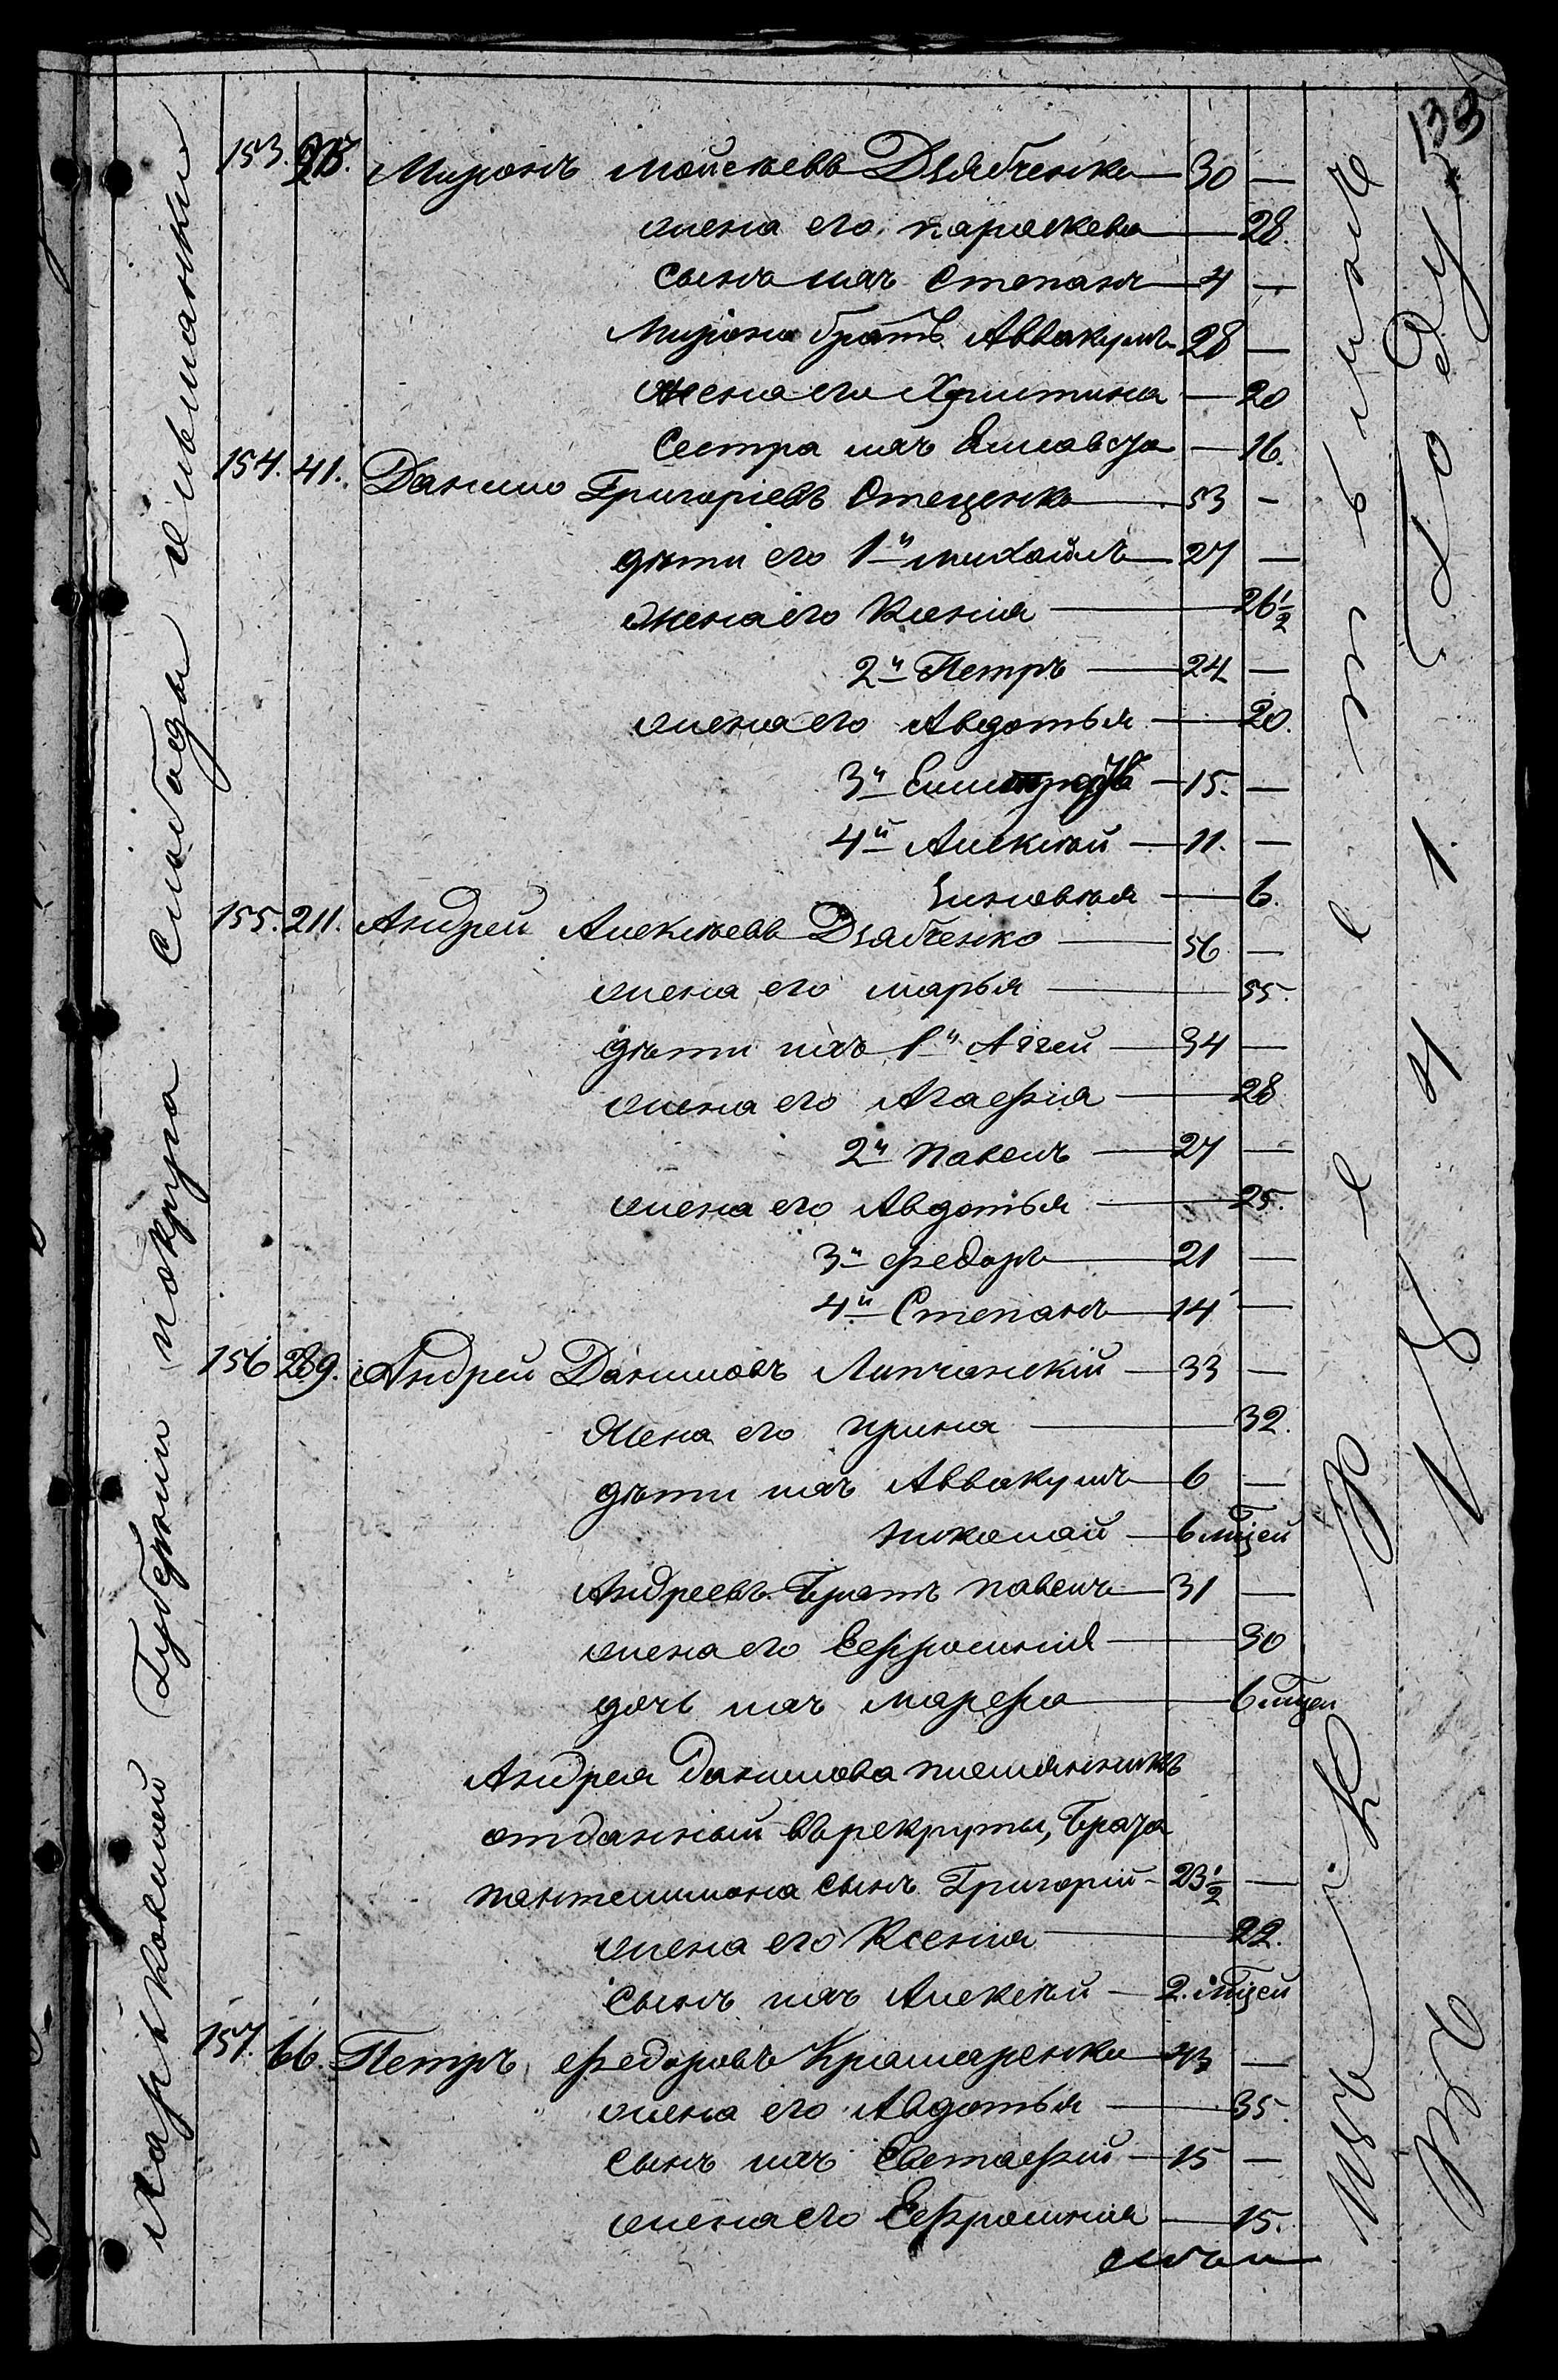 133
153. Миронъ Мойсѣевъ Дьябченко 30 —
жена его параскева — 28.
сынъ ихъ Степанъ 4 —
Мирона братъ Аввакумъ 28 —
жена его Христина — 20
Сестра ихъ — 16.
154. 41. Данило Григоріевъ 53 —
дѣти его 1й михайлъ 27 —
жена его Ксенія — 26 1/2
2й Петръ 24 —
жена его Авдотья — 20.
3й 15. —
4й Алексѣй 11. —
Зиновія — 6.
155. 211. Андрей Алексѣевъ Дьябченко 56 —
жена его марья — 55.
дѣти ихъ 1й Аггей 34 —
жена его Агафія — 28
2й павелъ 27 —
жена его Авдотья — 25.
3й федоръ 21 —
4й Степанъ 14 —
156 209. Андрей Даниловъ Липчанскій 33 —
Жена его ирина — 32.
дѣти ихъ Аввакумъ 6 —
николай 6 мцей
Андреевъ братъ павелъ 31 —
жена его Ефросинія — 30
дочь ихъ марфа — 6 мцей
Андрея данилова племянникъ
отданный въ рекруты, брата
пантелимона сынъ Григорій 23 1/2 —
жена его Ксенія — 22.
сынъ ихъ Алексѣй 2. мцей
157. 66. Петръ федоровъ Крамаренко 43 —
жена его Авдотья — 35.
сынъ ихъ Евстафій 15 —
жена его Ефросинія — 15.
Харьковской Губерніи округа Слободы
1841. Году